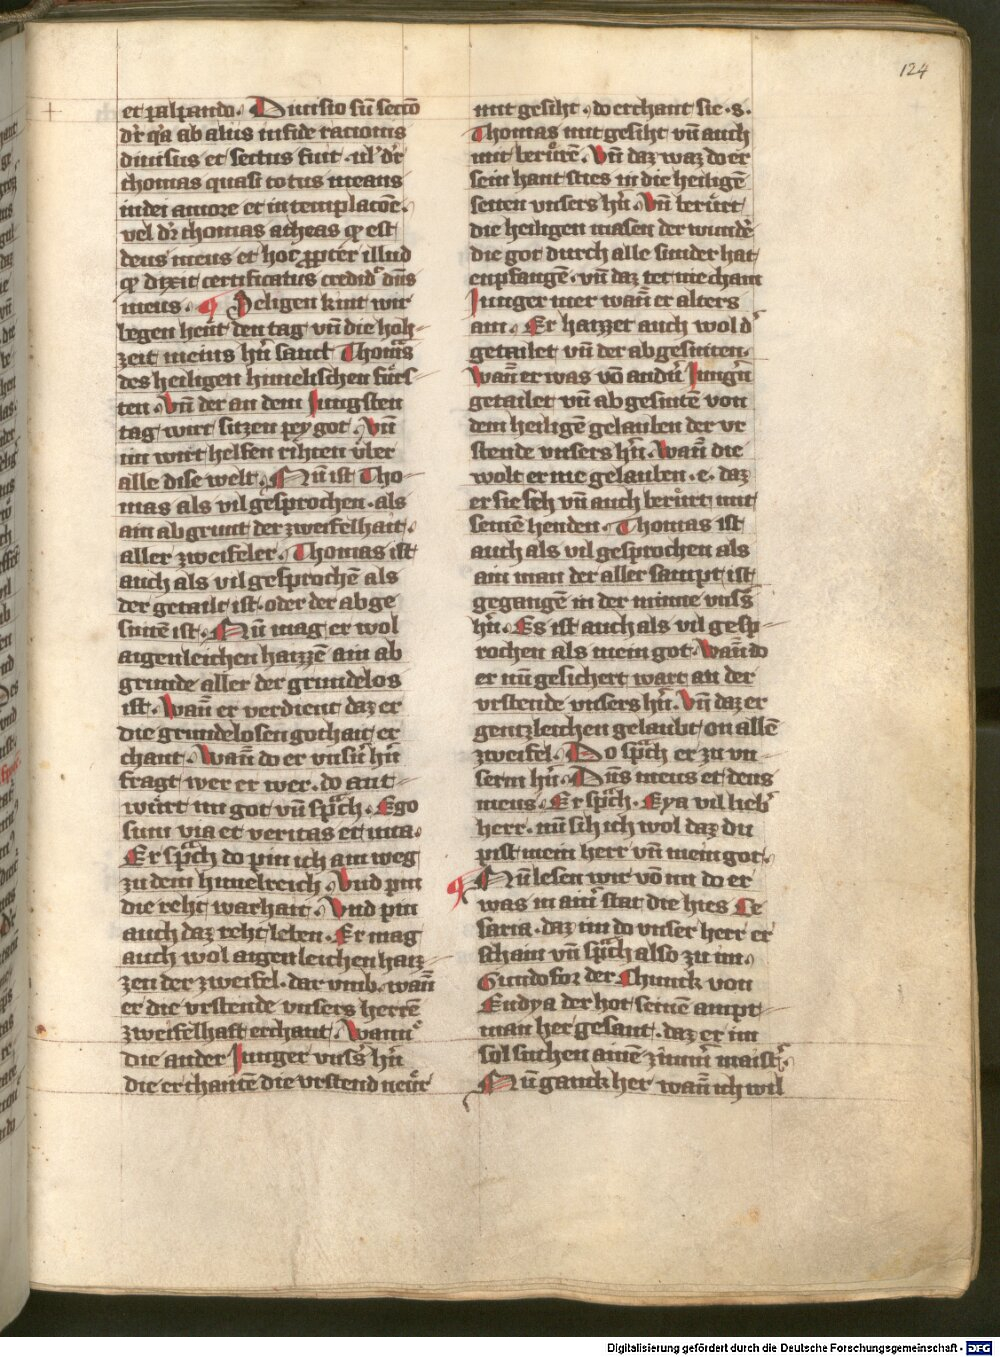 124
et palpando. Diuisio siue sectio
dr̄ qa ab alijs in fide racionis
diuisus et sectus fuit. ul' dr̄
thomas quasi totus means
in dei amore et in templacōe.
vel dr̄ thomas a theas qͦ est
deus meus et hoc ꝓpter illud
qͦ dixit certificatus credidˀ dn̄s
meus. ¶ Heligen kint wir
begen heut den tag vn̄ die hoh
zeit meins hˀn sant Thomas
des heiligen himelischen fürs
ten. Vn̄ der an dem Jungsten
tag wirt sitzen pey got. Vn̄
im wirt helfen rihten über
alle dise welt. Nu ist Tho
mas als vil gesprochen. als
ain abgrunt der zweifelhait.
aller zweifeler. Thomas ist
auch als vil gesprochē als
der getailt ist. oder der abge
snitē ist. Nu mag er wol
aigenleichen haizzē ain ab
grunde aller der grundelos
ist. Wan̄ er verdient daz er
die grundelosen gothait er
chant. Wan̄ do er vnsˀn hˀn
fragt wer er wer. do ant
würt im got vn̄ sprach. Ego
sum via et veritas et uita.
Er sprach do pin ich ain weg
zu dem himelreich. Vnd pin
die reht warhait. Vnd pin
auch daz reht leben. Er mag
auch wol aigenleichen haiz
zen der zweifel. dar vmb. wan̄
er die vrstende vnsers herrē
zweifelhaft erchant. Wann
die ander Junger vnsˀs hˀn
die erchantē die vrstend neur
mit gesiht. do erchant sie .s.
Thomas mit gesiht vn̄ auch
mit berürē. Vn̄ daz waz do er
sein hant sties in die heiligē
seiten vnsers hˀn. Vn̄ berürt
die heiligen masen der wundē
die got durch alle sunder hat
enpfangē. vn̄ daz tet nie chain
Junger mer wan̄ er alters
ain. Er haizzet auch wol dˀ
getailet vn̄ der abgesniten.
Wan̄ er was vō andˀn Jungˀn
getailet vn̄ abgesnitē von
dem heiligē gelauben der vr
stende vnsers hˀn. Wan̄ die
wolt er nie gelauben. e. daz
er sie seh vn̄ auch berürt mit
seinē henden. Thomas ist
auch als vil gesprochen als
ain man der aller sampt ist
gegangē in der minne vnsˀs
hˀn. Es ist auch als vil gesp
rochen als mein got. Wan̄ do
er nu gesichert wart an der
vrstende vnsers hˀn. Vn̄ daz er
gentzleichen gelaubt on allē
zweifel. Do sprach er zu vn
serm hˀn. Dn̄s meus et deus
meus. Er sprach. Eya vil liebˀ
herr. nu sih ich wol daz du
pist mein herr vn̄ mein got.
¶ Nu lesen wir vō im do er
was in ainˀ stat die hies Ce
saria. daz im do vnser herr er
schain vn̄ sprach also zu im.
Gundofor der Chunick von
Endya der hot seinē ampt
man her gesant. daz er im
sol suchen ainē zimˀmaistˀ.
Nu ganck her wan̄ ich wil
Digitalisierung gefördert durch die Deutsche Forschungsgemeinschaft - DFG